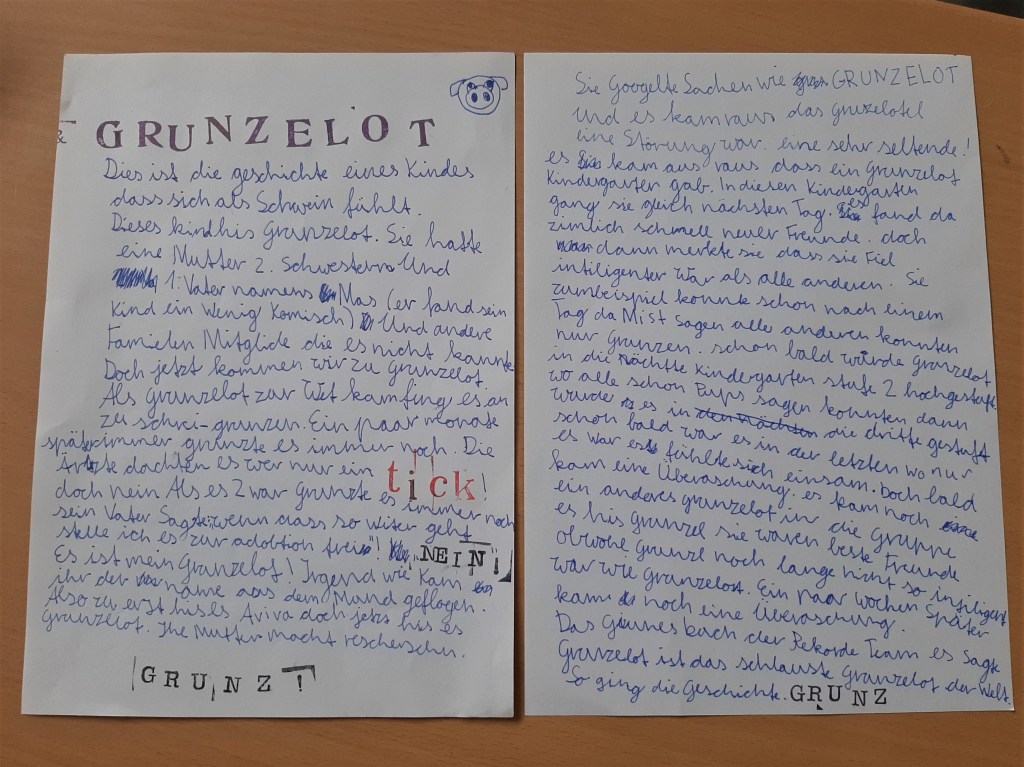 & GRUNZELOT
Dies ist die geschichte eines Kindes
dass sich als Schwein fühlt.
Dieses kind his Grunzelot. Sie hatte
eine Mutter 2. Schwestern Und
1. Vater namens Mas (er fand sein
Kind ein Wenig Komisch) Und andere
Familien Mitglide die es nicht kannte
Doch jetzt kommen wir zu Grunzelot.
Als Grunzelot zur Welt kam fing es an
zu schrei-grunzen. Ein paar monate
später immer grunzte es immer noch. Die
Ärtzte dachten es wer nur ein tick!
doch nein Als es 2 war Grunzte es immer noch
sein Vater Sagte: wenn dass so Witer geht
stelle ich es zur adobtion frei"! NEIN!
Es ist mein Grunzelot! Irgend wie Kam
ihr der name aus dem Mund geflogen.
Also zu erst hies es Aviva doch jetz his es
Grunzelot. Ihe Mutter macht rescherschn.
GRUNZ!
Sie Googelte Sachen wie GRUNZELOT
und es kam raus das Gruzelotel
eine Störung war. eine sehr seltende!
es kam aus raus dass ein Grunzelot
Kindergarten gab. In diesen Kindergarten
gang sie gleich nächsten Tag. es fand da
zimlich schnell neuer Freunde. doch
dann merkte sie dass sie Fiel
intiligenter War als alle anderen. Sie
zumbeispiel konnte schon nach einem
Tag da Mist sagen alle anderen konnten
nur Grunzen. schon bald würde Grunzelot
in die Nächtte Kindergarten stufe 2 hochgestuft.
wo alle schon Pups sagen konnten, dann
wurde es in den Nächsten die dritte gestuft
schon bald war es in der letzten wo nur
es war es fühlte sich einsam. Doch bald
kam eine Überaschung. es kam noch
ein anderes grunzelot in die Gruppe
es his Grunzel sie waren beste Freunde
obwohl Grunzl noch lange nicht so intiligent
war wie Grunzelost. Ein paar Wochen Später
kam noch eine Überaschung.
Das Giunes bach der Rekorde Team es Sagte
Grunzelot ist das schlauste Grunzelot der Welt.
So ging die Geschichte. GRUNZ